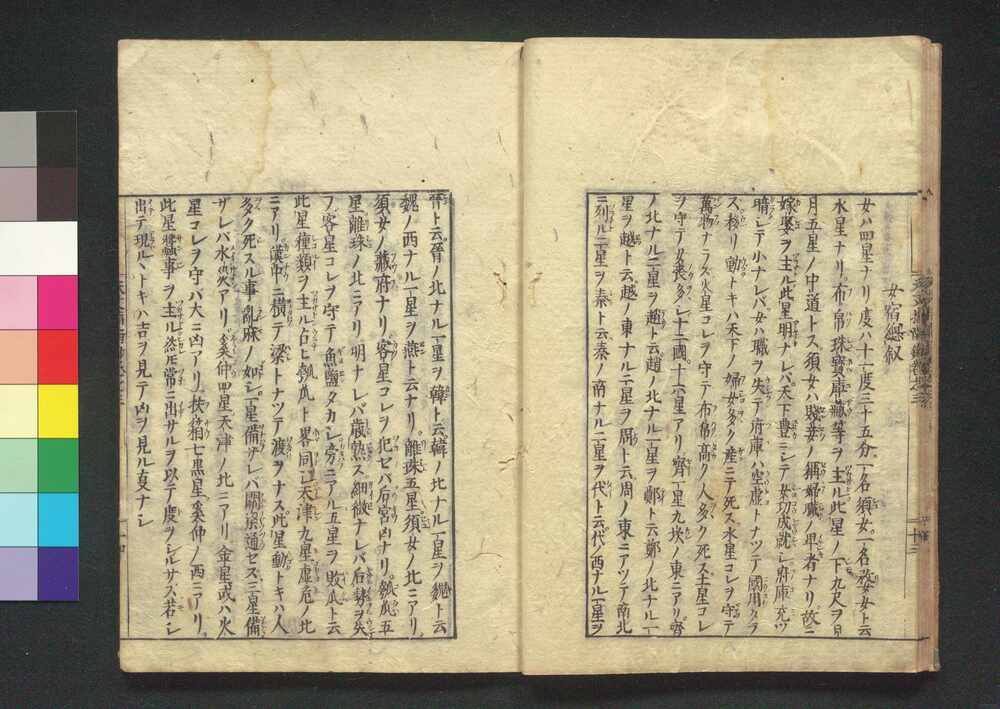 女宿總叙
女ハ四星ナリ度ハ十一度三十五分一名須女一名婺女ト云
水星ナリ布帛珠寶庫藏等ヲ主ル此星ノ下九尺ヲ日
月五星ノ中道トス須女ハ賤妾ノ稱婦職ノ卑者ナリ故ニ
嫁娶ヲ主ル此星明ナレバ天下豊ニシテ女功成就シ府庫充ツ
暗シテ小ナレバ女ハ職ヲ失ヒ府庫ハ空虚トナツテ國用タラ
ズ移リ動トキハ天下ノ婦女多ク産ニテ死ス水星コレヲ守テ
萬物ナラズ火星コレヲ守テ布帛高ク人多ク死ス土星コレ
ヲ守テ女喪多シ十二國十六星アリ齊一星九坎ノ東ニアリ齊
ノ北ナル二星ヲ趙ト云趙ノ北ナル一星ヲ鄭ト云鄭ノ北ナル一
星ヲ越ト云越ノ東ナル二星ヲ周ト云周ノ東ニアツテ南北
ニ列ル二星ヲ秦ト云秦ノ南ナル二星ヲ代ト云代ノ西ナル一星ヲ
晉ト云晉ノ北ナル一星ヲ韓ト云韓ノ北ナル一星ヲ魏ト云
魏ノ西ナル一星ヲ燕ト云ナリ離珠五星須女ノ北ニアリ
須女ノ藏府ナリ客星コレヲ犯セバ后宮凶ナリ瓠瓜五
星離珠ノ北ニアリ明ナレバ歳熟ス細微ナレバ后勢ヲ失
フ客星コレヲ守テ魚鹽タカシ旁ニアル五星ヲ敗瓜ト云
此星種類ヲ主ル占ヒ瓠瓜ト畧同シ天津九星虚危ノ北
ニアリ漢中ニ横テ梁トナツテ渡ヲナス此星動トキハ人
多ク死スル事亂麻ノ如シ一星備ザレバ關梁通セズ三星備
ザレバ水災アリ奚仲四星天津ノ北ニアリ金星或ハ火
星コレヲ守バ大ニ凶アリ扶筐七黒星奚仲ノ西ニアリ
此星蠶事ヲ主ル然𪜈常ニ出サルヲ以テ度ヲシルサズ若シ
出テ現ルヽトキハ吉ヲ見テ凶ヲ見ル叓ナシ